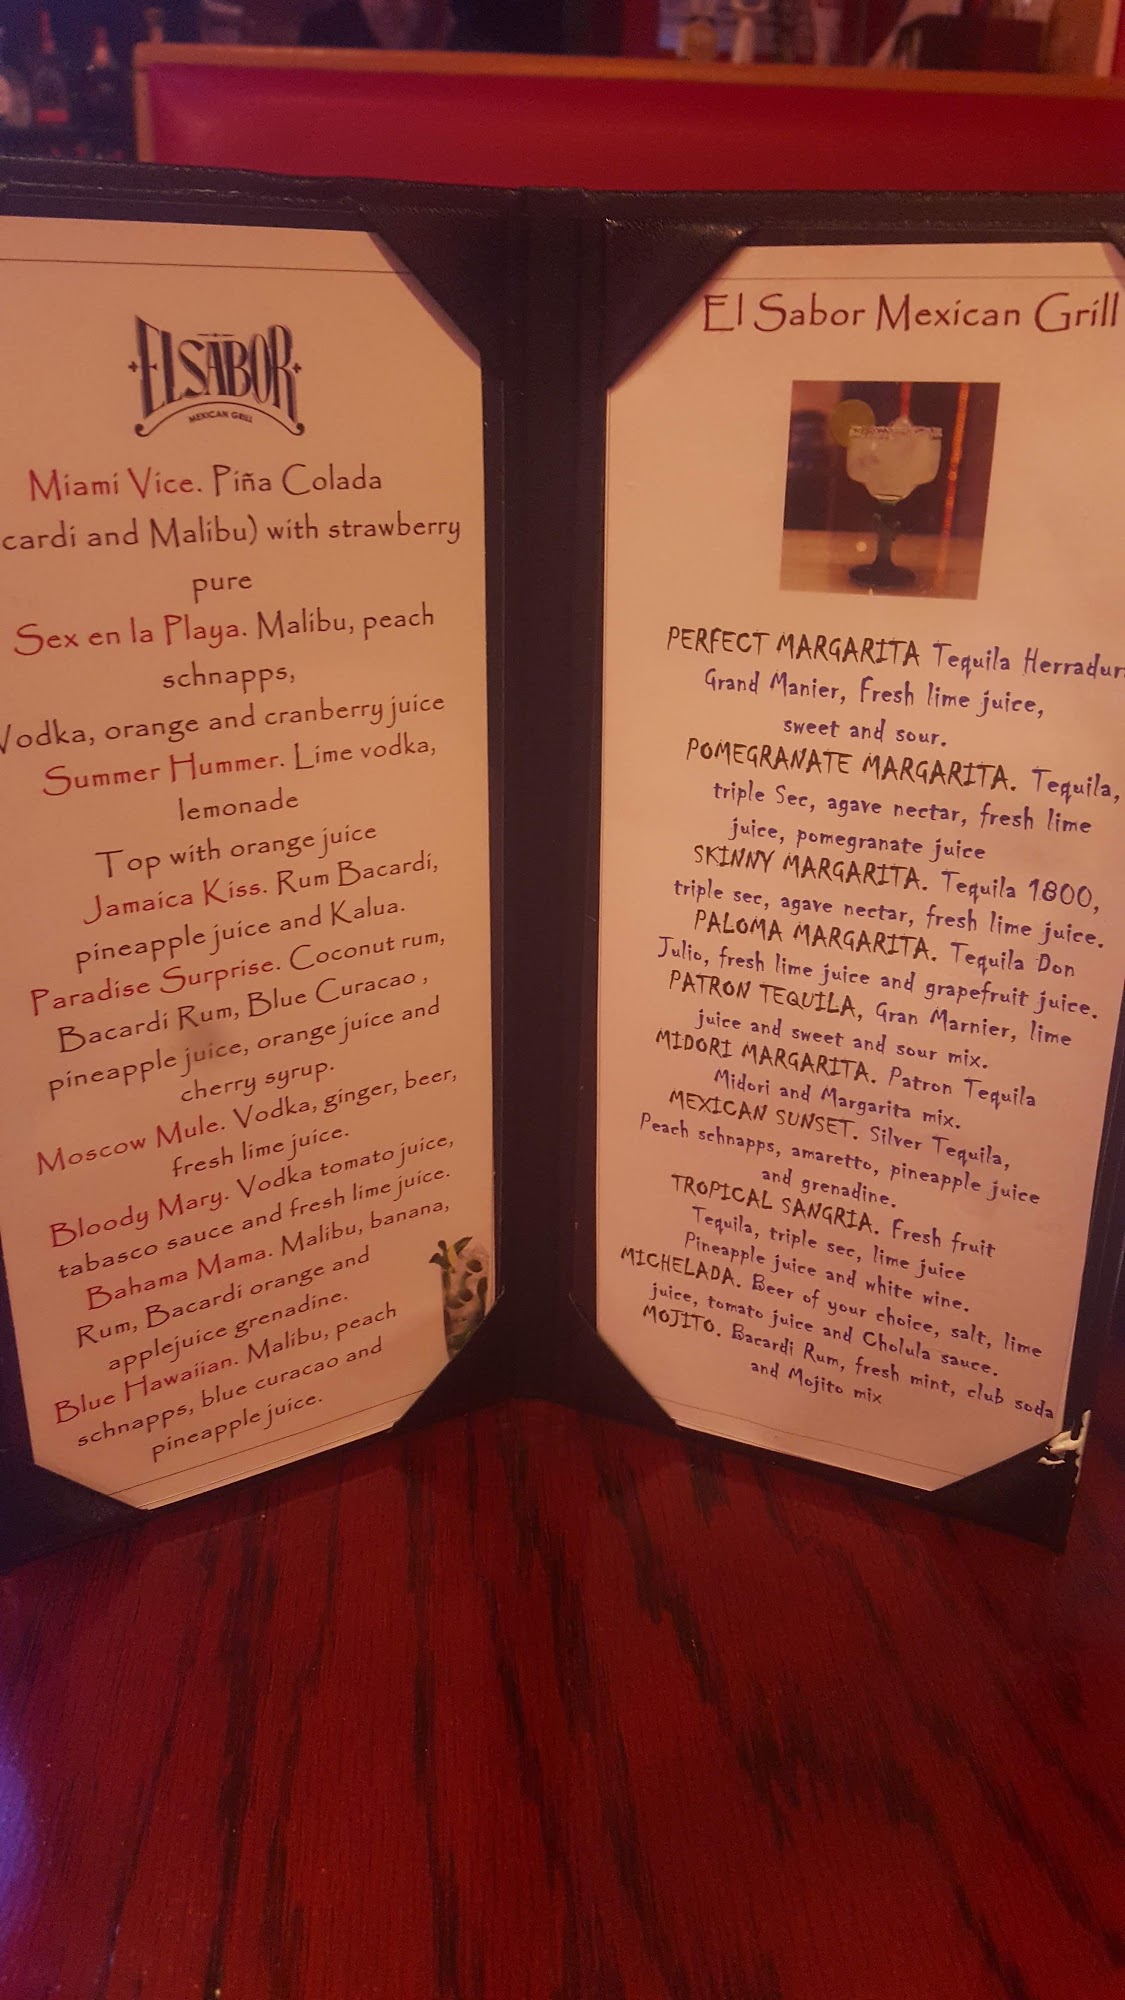 EL SABOR
MEXICAN GRILL
Miami Vice. Piña Colada
cardi and Malibu) with strawberry
pure
Sex en la Playa. Malibu, peach
schnapps,
Vodka, orange and cranberry juice
Summer Hummer. Lime vodka,
lemonade
Top with orange juice
Jamaica Kiss. Rum Bacardi,
pineapple juice and Kalua.
Paradise Surprise. Coconut rum,
Bacardi Rum, Blue Curacao ,
pineapple juice, orange juice and
cherry syrup.
Moscow Mule. Vodka, ginger, beer,
fresh lime juice.
Bloody Mary. Vodka tomato juice,
tabasco sauce and fresh lime juice.
Bahama Mama. Malibu, banana,
Rum, Bacardi orange and
applejuice grenadine.
Blue Hawaiian. Malibu, peach
schnapps, blue curacao and
pineapple juice.
El Sabor Mexican Grill
PERFECT MARGARITA Tequila Herradur
Grand Manier, Fresh lime juice,
sweet and sour.
POMEGRANATE MARGARITA. Tequila,
triple Sec, agave nectar, fresh lime
juice, pomegranate juice
SKINNY MARGARITA. Tequila 1800,
triple sec, agave nectar, fresh lime juice.
PALOMA MARGARITA. Tequila Don
Julio, fresh lime juice and grapefruit juice.
PATRON TEQUILA, Gran Marnier, lime
juice and sweet and sour mix.
MIDORI MARGARITA. Patron Tequila
Midori and Margarita mix.
MEXICAN SUNSET. Silver Tequila,
Peach schnapps, amaretto, pineapple juice
and grenadine.
TROPICAL SANGRIA. Fresh fruit
Tequila, triple sec, lime juice
Pineapple juice and white wine.
MICHELADA. Beer of your choice, salt, lime
juice, tomato juice and Cholula sauce.
MOJITO. Bacardi Rum, fresh mint, club soda
and Mojito mix